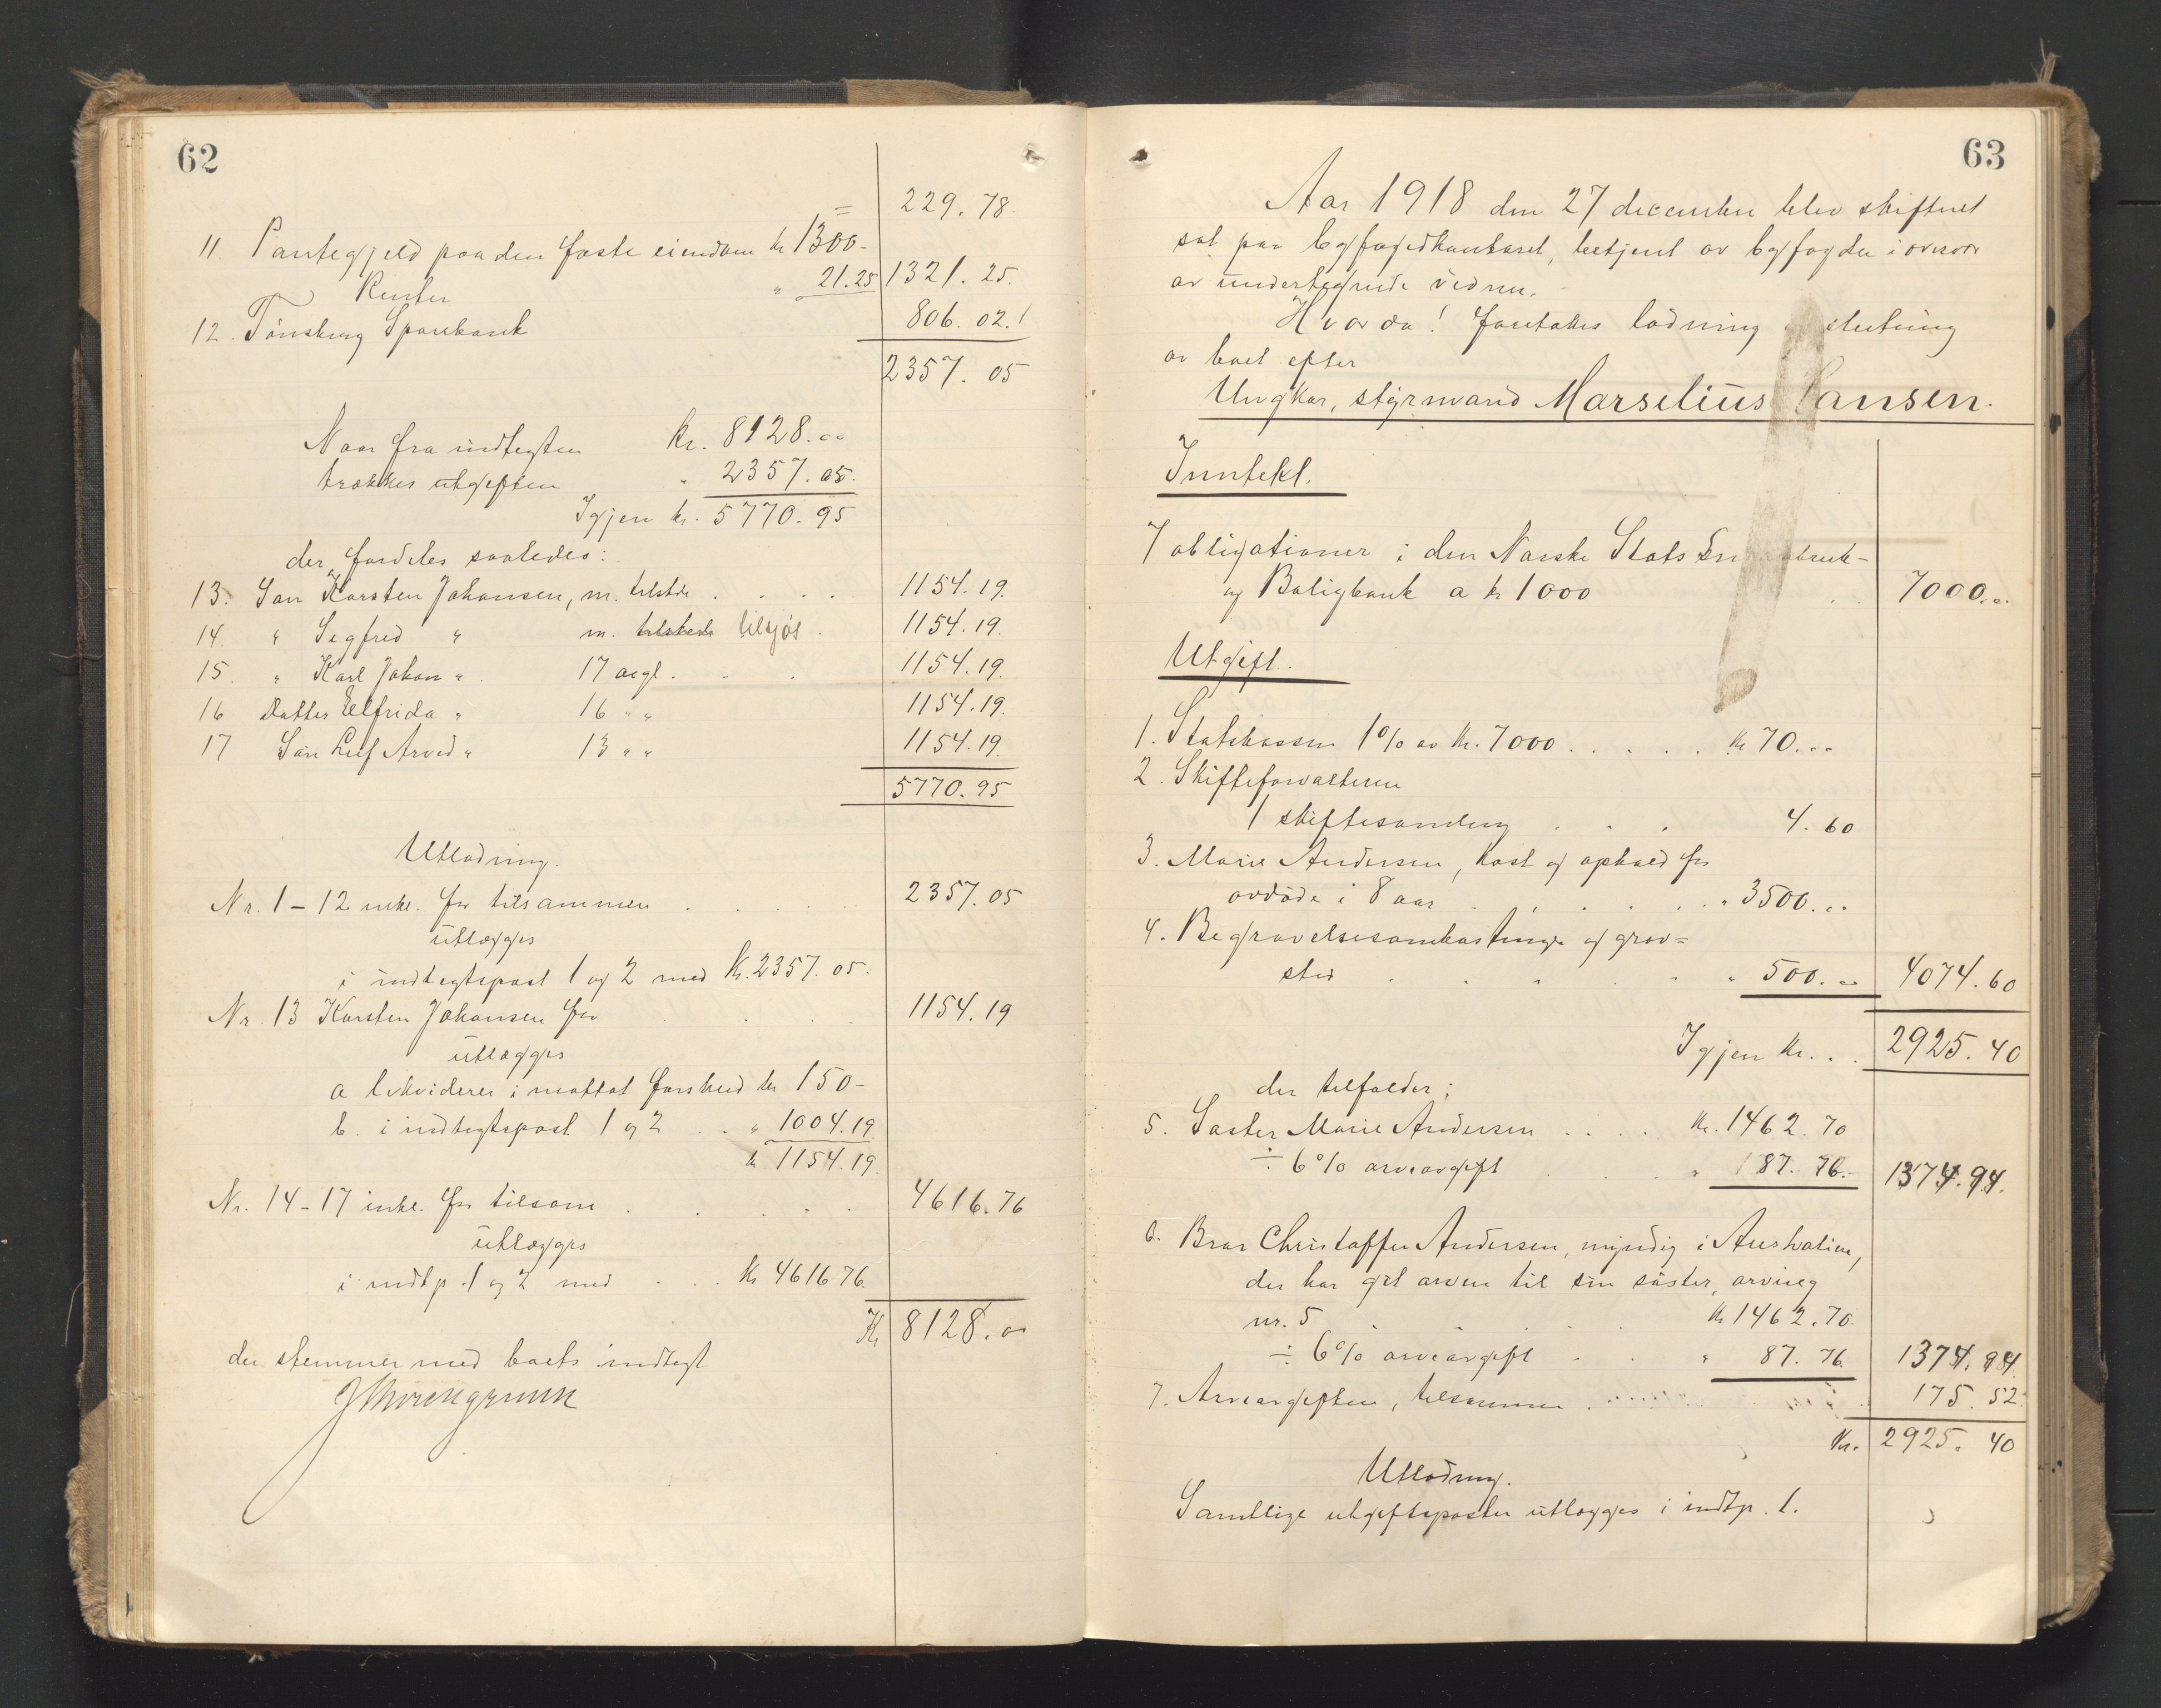 62
= 229. 78.
11. Pantegjeld paa den faste eiendom kr 1300-
Renter " 21.25 1321. 25.
12. Tønsberg Sparebank 806. 02.
2357. 05
Naar fra indtegten Kr. 8128.00
trækkes utgiften " 2357. 05.
Igjen kr. 5770. 95
der fordeles saaledes:
13. Søn Karsten Johansen, m. tilstede . . . . 1154. 19.
14. " Sigfred " m. tilstede tilsjøs . 1154. 19.
15. " Karl Johan " 17 aargl . . . 1154. 19.
16 Datter Elfrida " 16 " " 1154. 19.
17 Søn Leif Arvid " 13 " " 1154. 19.
5770. 95
Utlodning.
Nr. 1 - 12 inkl. for tilsammen . . . . 2357. 05
utlægges
i indtegtspost 1 og 2 med Kr. 2357. 05.
Nr. 13 Karsten Johansen for . . . . 1154. 19
utlægges
a likviderer i mottat forskud kr 150-
b. i indtegtspost 1 og 2 . . " 1004. 19
kr 1154. 19.
Nr. 14 - 17 inkl. for tilsam . . . . . 4616. 76
utlægges
i indtp. 1 og 2 med . . . Kr 4616 76.
Kr 8128. 00
der stemmer med boets indtegt
63
Aar 1918 den 27 december blev skifteret
sat paa byfogedkontoret, betjent av byfogden i overvær
av undertegnede vidner.
Hvorda! foretokes lodning og slutning
av boet efter
Ungkar, styrmand Marselius Hansen.
Inntekt.
7 obligationer i den Norske Stats Småbruk-
og Boligbank a kr 1000 . . 7000.00
Utgift.
1. Statskassen 1% av Kr. 7000 . . . . . Kr 70.00
2. Skifteforvalteren
1 skiftesamling . . . 4. 60
3. Marie Andersen, kost og ophold for
avdøde i 8 aar . . . . . . " 3500. 00
4. Begravelsesomkostninger og grav=
sted . . . . . . " 500. 00 4074. 60
Igjen Kr. . . 2925. 40
der tilfalder:
5. Søster Marie Andersen . . . . Kr. 1462. 70
÷ 6% arveavgift . . . " 87. 76. 1374. 94.
6. Bror Christoffer Andersen, myndig i Australien,
der har git arven til sin søster, arving
nr. 5 . . . . Kr 1462. 70.
÷ 6% arveavgift . . " 87. 76 1374. 94.
7. Arveavgiften, tilsammen . . . . . 175. 52.
Kr. 2925. 40
Utlodning.
Samtlige utgiftsposter utlægges i indtp. 1.